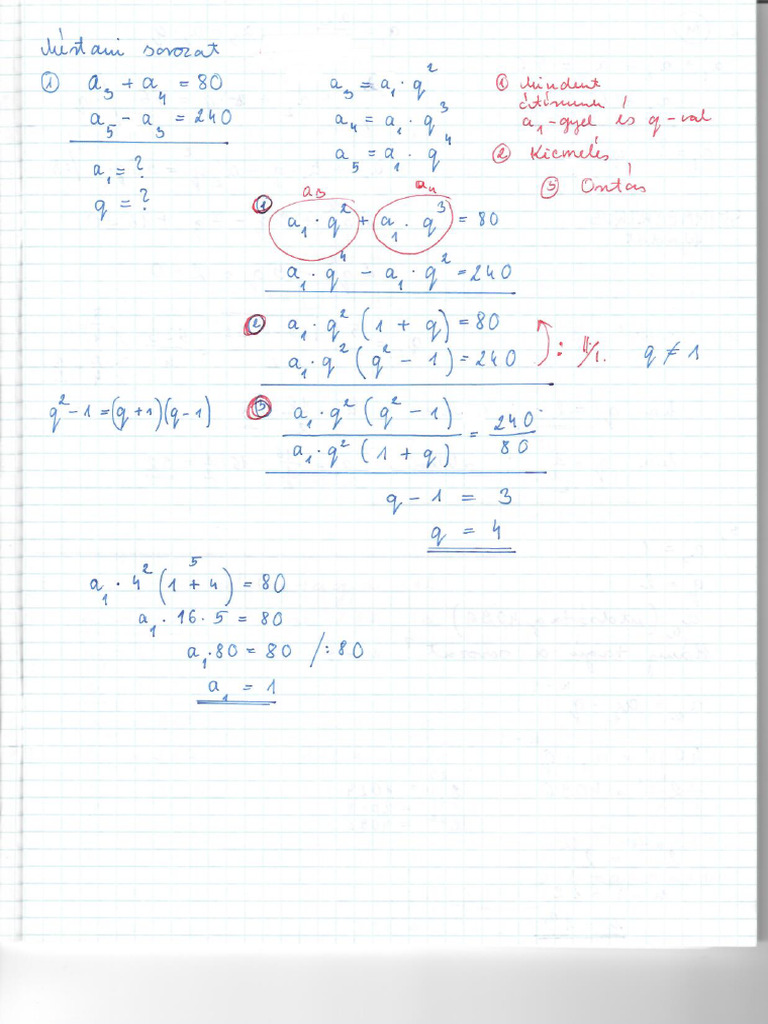 Mértani sorozat
① a₃ + a₄ = 80
a₅ - a₃ = 240
a₁ = ?
q = ?
a₃ = a₁ · q²
a₄ = a₁ · q³
a₅ = a₁ · q⁴
① Mindent
átírunk
a₁-gyel és q-val
② Kiemelés
③ Osztás
a₃ a₄
① a₁ · q² + a₁ · q³ = 80
a₁ · q⁴ - a₁ · q² = 240
② a₁ · q² (1 + q) = 80
a₁ · q² (q² - 1) = 240 : II/I. q ≠ 1
q² - 1 = (q + 1)(q - 1)
③ a₁ · q² (q² - 1) / a₁ · q² (1 + q) = 240 / 80
q - 1 = 3
q = 4
5
a₁ · 4² (1 + 4) = 80
a₁ · 16 · 5 = 80
a₁ · 80 = 80 /: 80
a₁ = 1